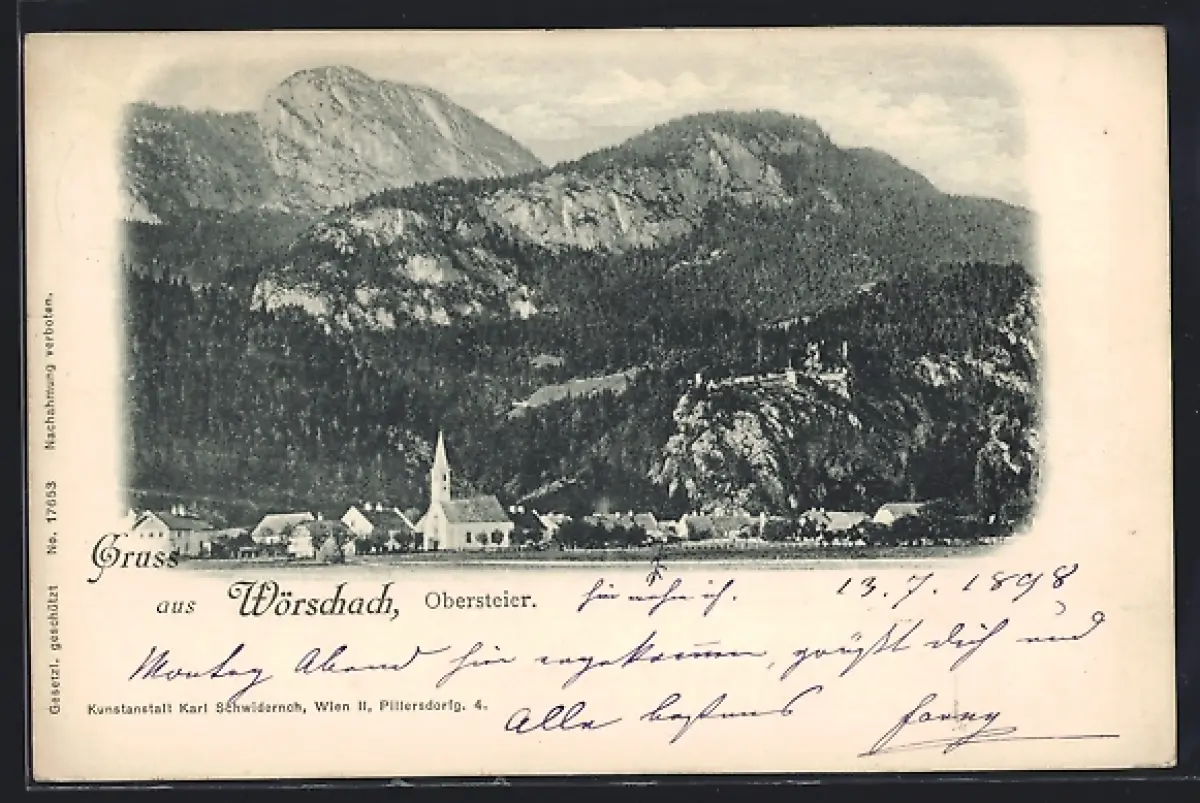 Gruss
aus Wörschach, Obersteier.
hier wohne ich. 13. 7. 1898
Montag Abend hier angekommen, grüßt Dich und
Alle bestens
Kunstanstalt Karl Schwidernoh, Wien II, Pillersdorfg. 4.
Gesetzl. geschützt No. 17653 Nachahmung verboten.